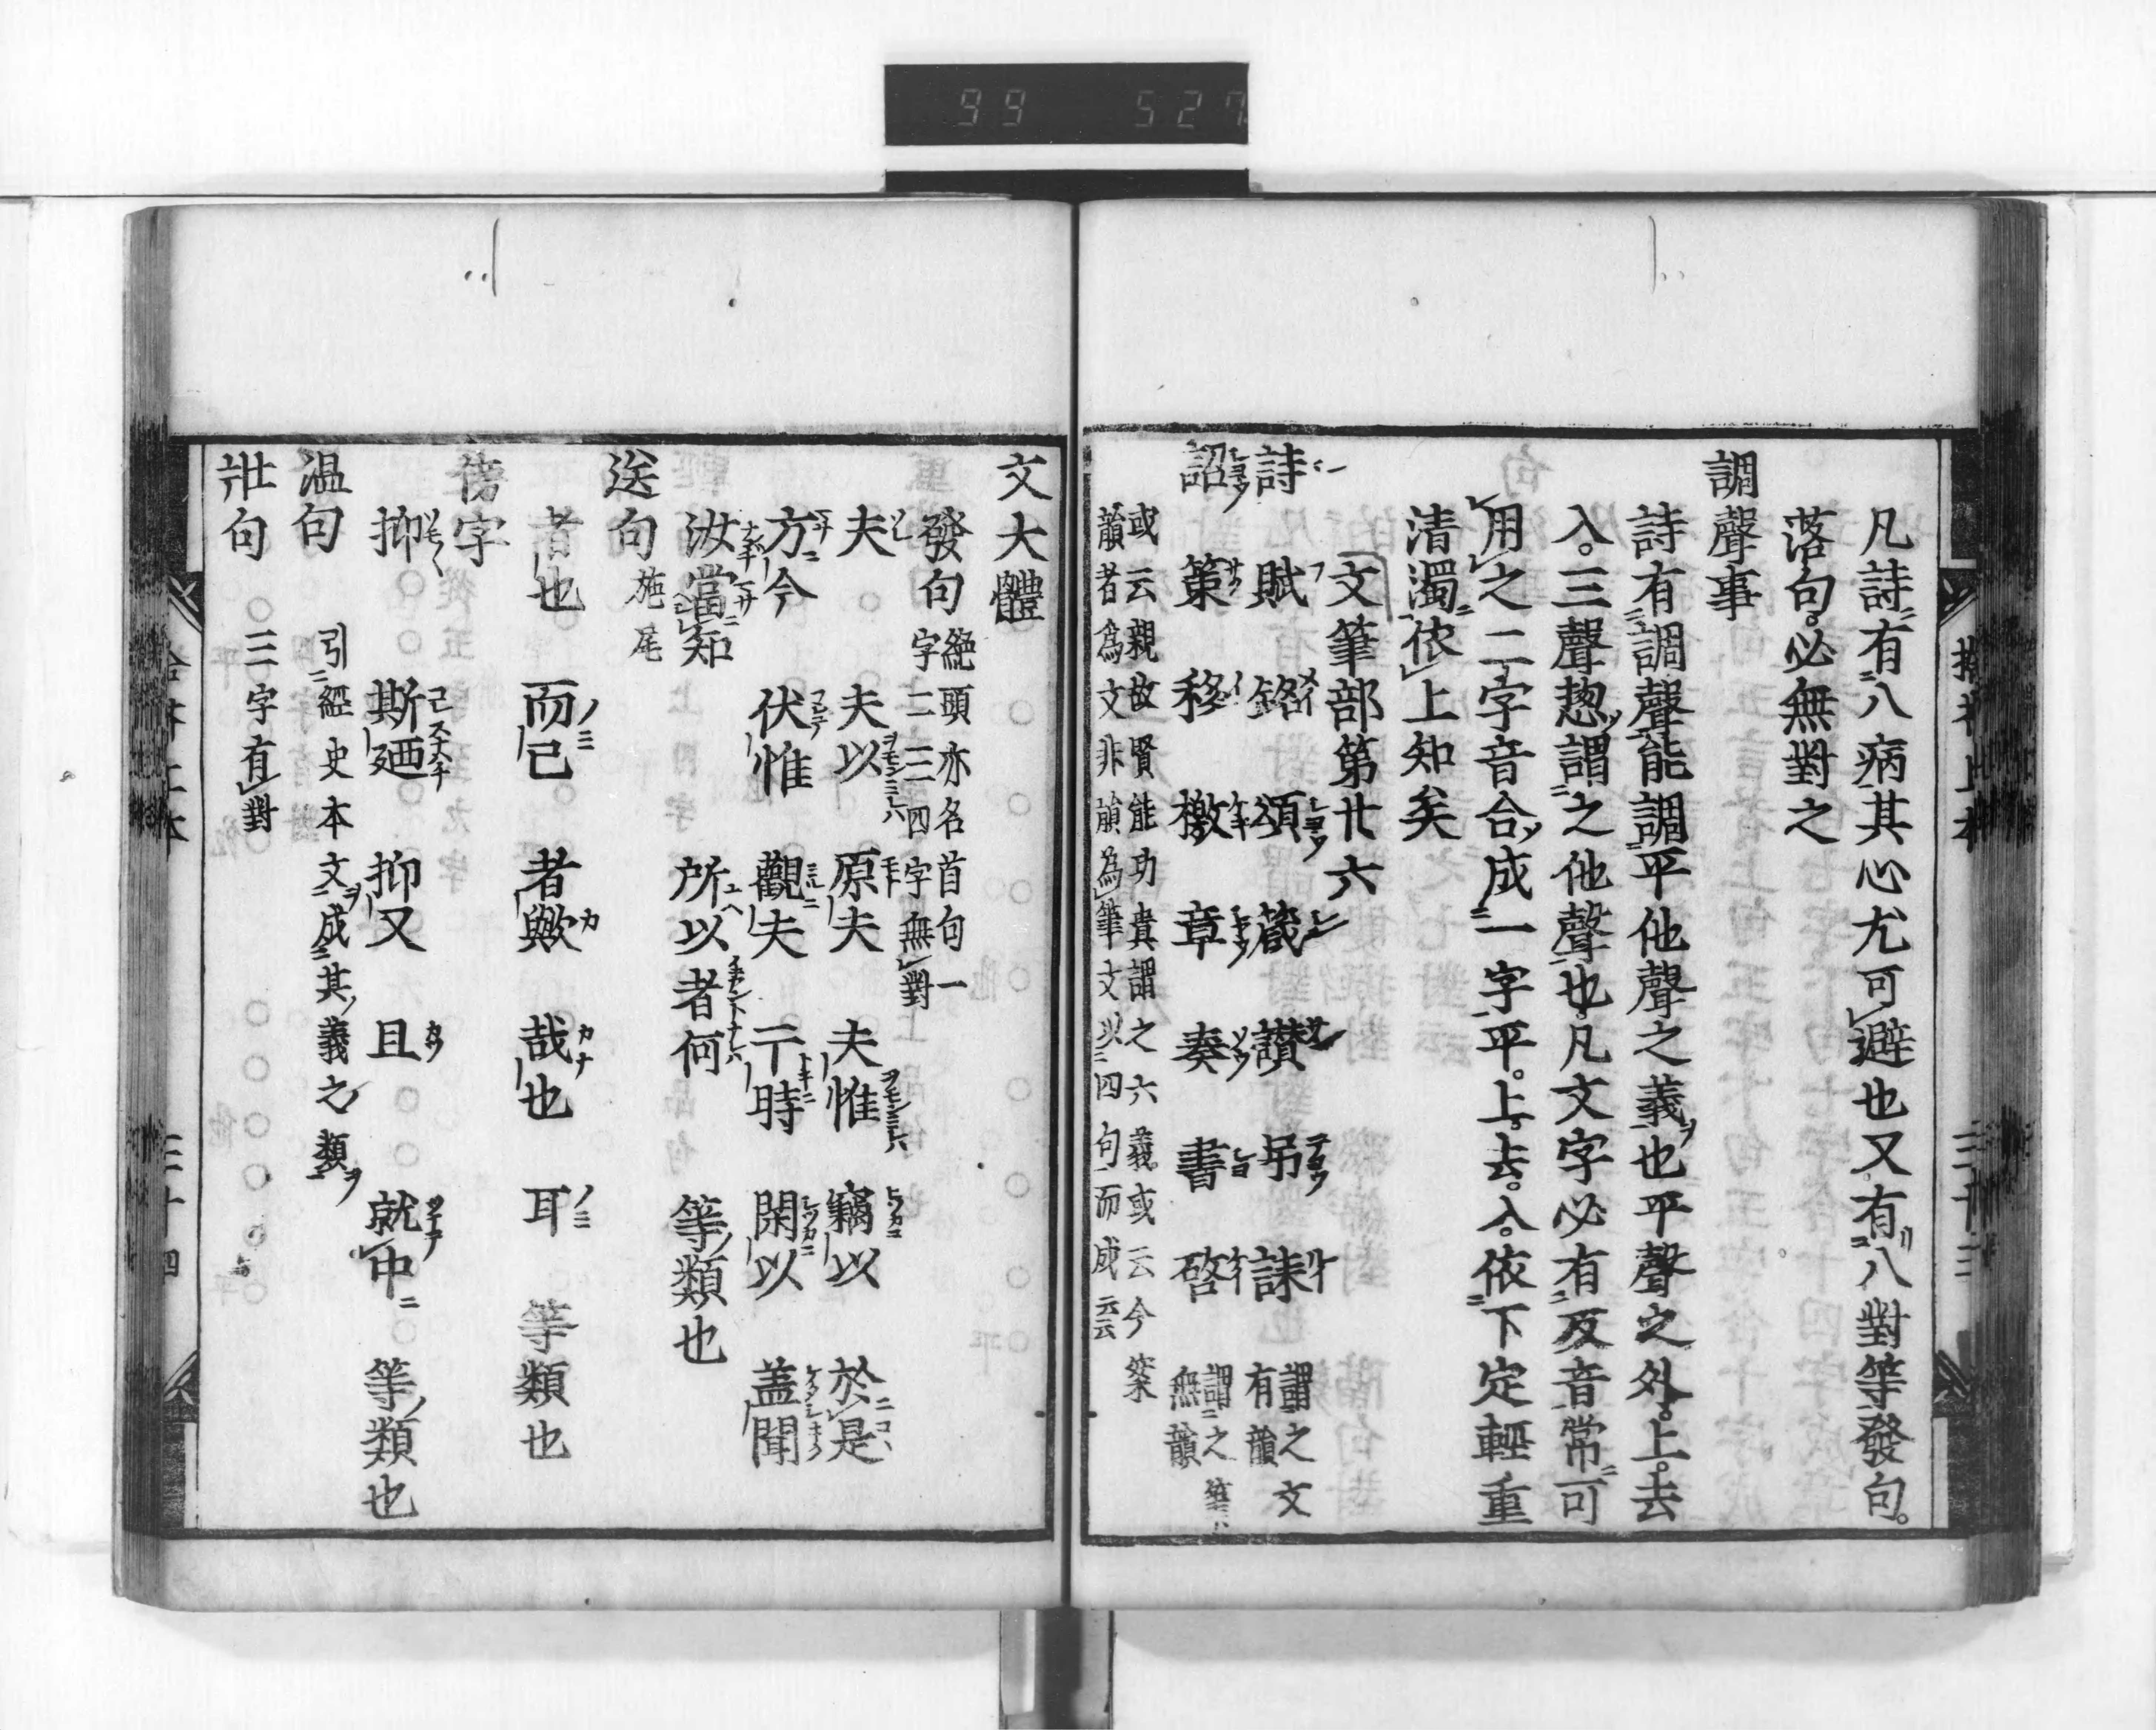 99 527
凡詩有八病其心尤可避也又有八對等發句。
落句。必無對之
調聲事
詩有調聲能調平他聲之義也平聲之外。上。去
入。三聲惣謂之他聲也。凡文字必有反音常可
用之二字音合成一字平。上。去。入。依下定輕重
清濁依上知矣
文筆部第廿六
詩 賦 銘 頌 箴 讃 吊 誄 謂之文有韻
詔 策 移 檄 章 奏 書 啓 謂之筆無韻
或云親故賢能功貴謂之六義。或云今案
韻者為文非韻為筆文以四句而成云云
文大體
發句 絶頭亦名首句一字二三四字無對
夫 夫以 原夫 夫惟 竊以 於是
方今 伏惟 觀夫 于時 閑以 蓋聞
汝當知 所以者何 等類也
送句 施尾
者也 而已 者歟 哉也 耳 等類也
傍字
抑 斯廼 抑又 且 就中 等類也
温句 引經史本文成其義之類
壯句 三字有對